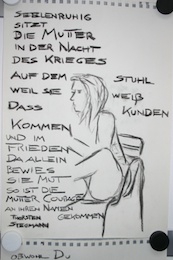 SEELENRUHIG
SITZT
DIE MUTTER
IN DER NACHT
DES KRIEGES
AUF DEM STUHL
WEIL SIE WEIß
DASS KUNDEN
KOMMEN
UND IM
FRIEDEN
DA ALLEIN
BEWIES
SIE MUT
SO IST DIE
MUTTER COURAGE
AN IHREN NAMEN
GEKOMMEN
THORSTEN
STEGMANN
OBWOHL DU